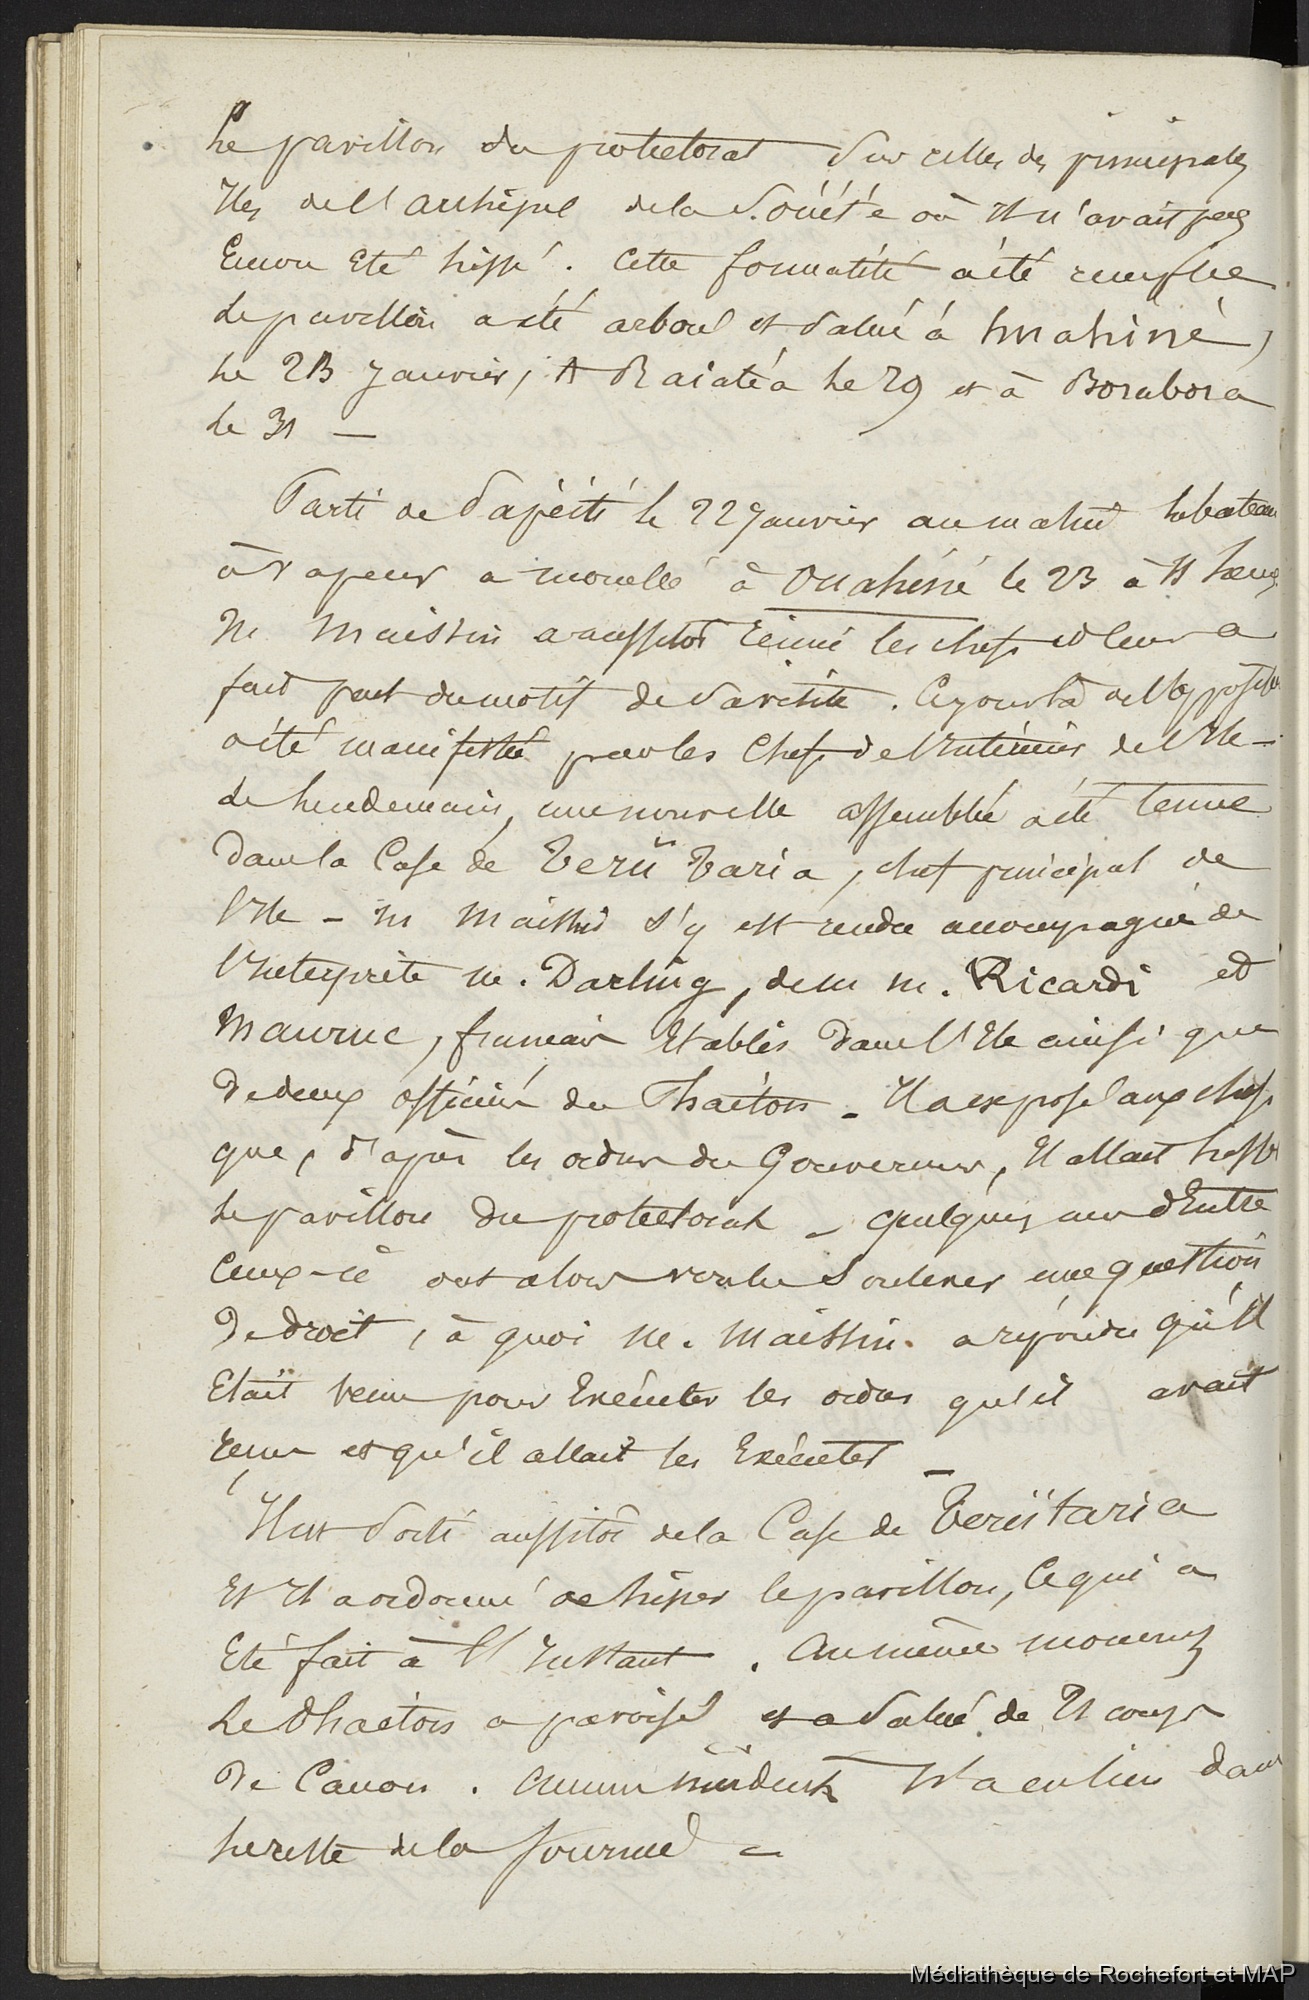 Le pavillon du protectorat sur celles des principales
Iles de l'archipel de la Société où Il n'avait pas
Encore Eté hissé. Cette formalité a été remplie
Le pavillon a été arboré et salué à huahiné,
Le 23 Janvier, A Raiatéa Le 29 et à Borabora
Le 31 —
Parti de Papéiti le 22 Janvier au matin le bateau
à vapeur a mouillé à Ouahiné le 23 à 11 heures
M. Maissin a aussitot réuni les chefs et leur a
fait part du motif de sa visite. Ce jour là de l'opposition
a été manifestée par les Chefs de l'Intérieur de l'Ile —
Le lendemain, une nouvelle assemblée a été tenue
Dans la Case de Teriï Taria, chef principal de
l'Ile — M Maissin s'y est rendu accompagné de
l'Interprète M. Darling, de M M. Ricardi et
Mauruc, français Etablis Dans l'Ile ainsi que
De deux officiers du Phaéton — Il a exposé aux chefs
que, d'après les ordres du Gouverneur, Il allait hisser
Le pavillon Du protectorat — quelques uns d'Entre
Ceux-ci ont alors voulu Soulever une question
De droit, à quoi M. Maissin. a répondu qu'Il
Etait venu pour Exécuter les ordres qu'il avait
reçus et qu'il allait les Exécuter —
Il est Sorti aussitôt de la Case de Teriïtaria
Et Il a ordonné de hisser le pavillon, Ce qui a
Eté fait à l'Instant. Au même moment
Le Phaéton a pavoisé et a Salué de 21 coups
De Canon. Aucun incident N'a eu lieu dans
Le reste de la Journée —
Médiathèque de Rochefort et MAP